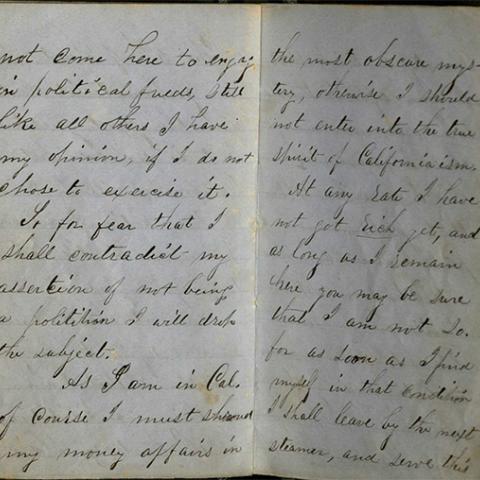 not come here to engage
in political fueds, still
like all others I have
my opinion, if I do not
chose to exercise it.
So for fear that I
shall contradict my
assertion of not being
a polititian I will drop
the subject.
As I am in Cal.
of course I must shroud
my money affairs in
the most obscure mys-
tery, otherwise I should
not enter into the true
spirit of Californiaism.
At any rate I have
not got rich yet, and
as long as I remain
here you may be sure
that I am not so.
for as soon as I find
myself in that condition
I shall leave by the next
steamer, and serve this